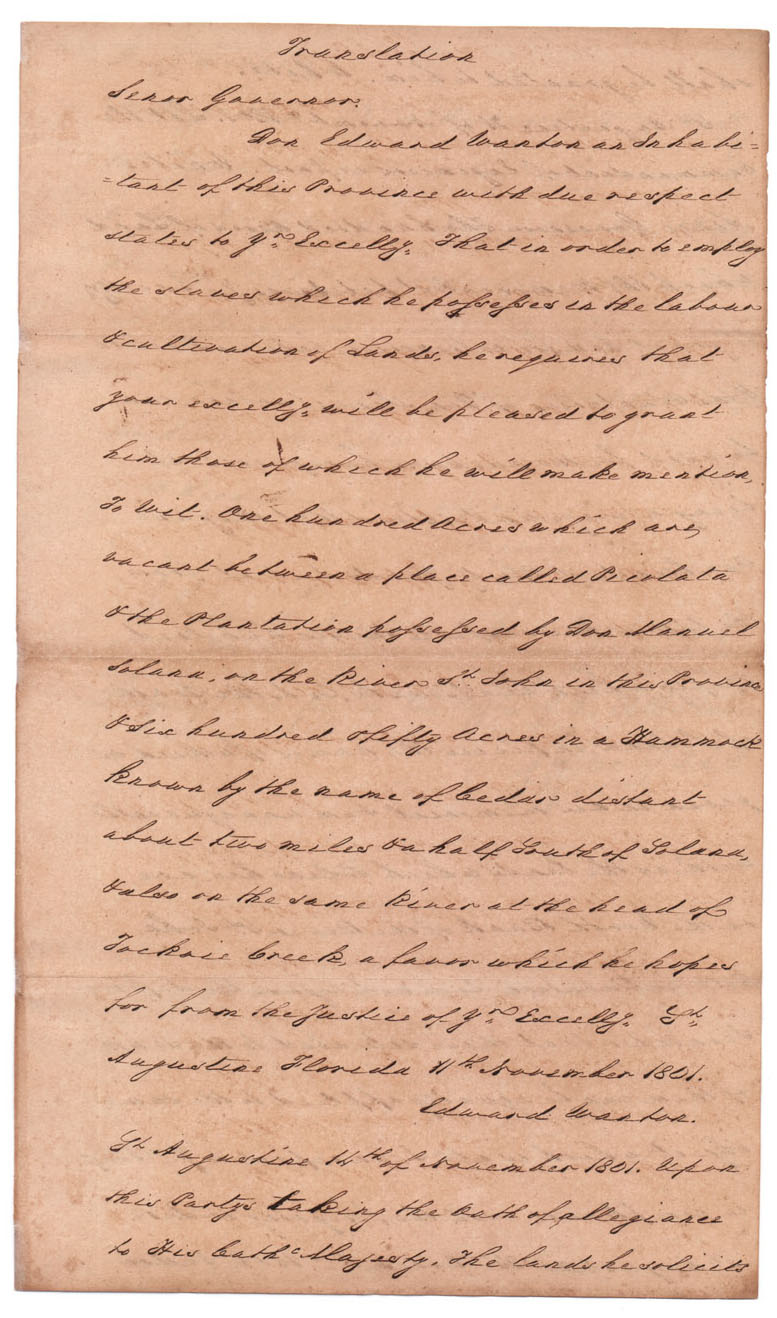 Translation
Senor Governor.
Don Edward Wanton an Inhabi=
=tant of this Province with due respect
states to Yr. Excelly. That in order to employ
the slaves which he possesses in the labour
& cultivation of Lands, he requires that
your excelly. will be pleased to grant
him those of which he will make mention,
To Wit. One hundred Acres which are,
vacant between a place called Picolata
& the Plantation possessed by Don Manuel
Solana, on the River St. John in this Province
& Six hundred & fifty Acres in a Hammock
known by the name of Cedar distant
about two miles & a half South of Solana,
& also on the same River at the head of
Tockoie Creek, a favor which he hopes
for from the Justice of Yr. Excelly. St.
Augustine Florida 11th November 1801.
Edward Wanton.
St Augustine 14th of November 1801. Upon
this Partys taking the Oath of allegiance
to His Cathc Majesty. The lands he solicits